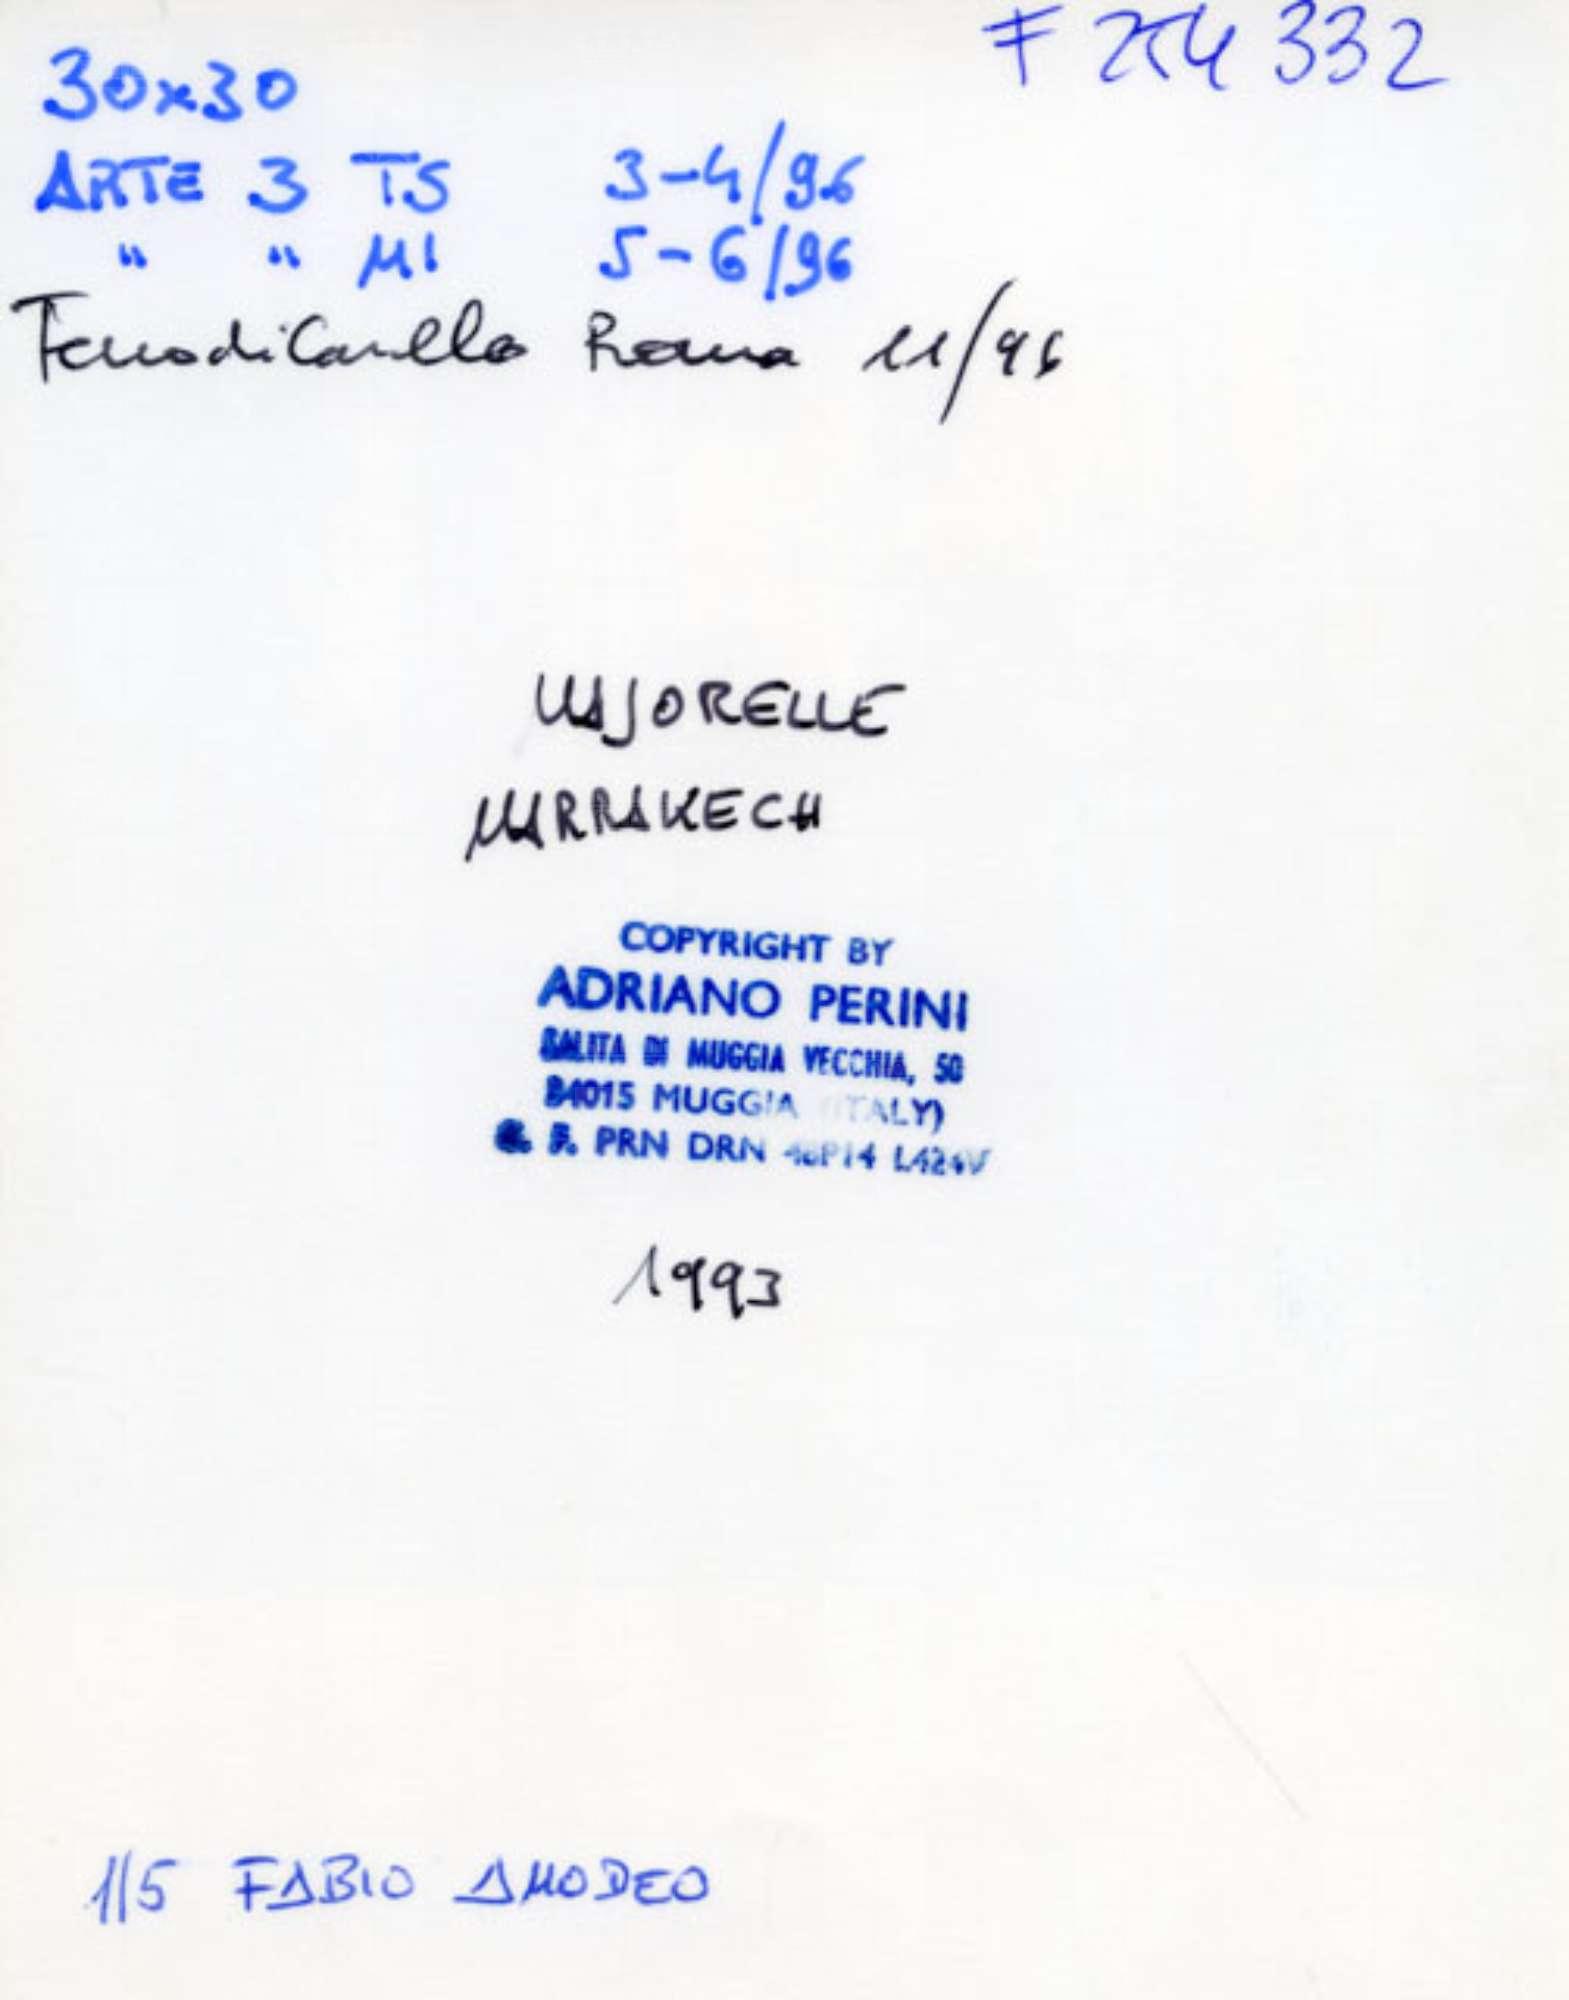 F 254 332
30x30
ARTE 3 TS 3-4/96
" " MI 5-6/96
Ferro di Cavallo Roma 11/96
MAJORELLE
MARRAKECH
COPYRIGHT BY
ADRIANO PERINI
SALITA DI MUGGIA VECCHIA, 50
34015 MUGGIA (ITALY)
C. F. PRN DRN L424V
1993
1/5 FABIO AMODEO